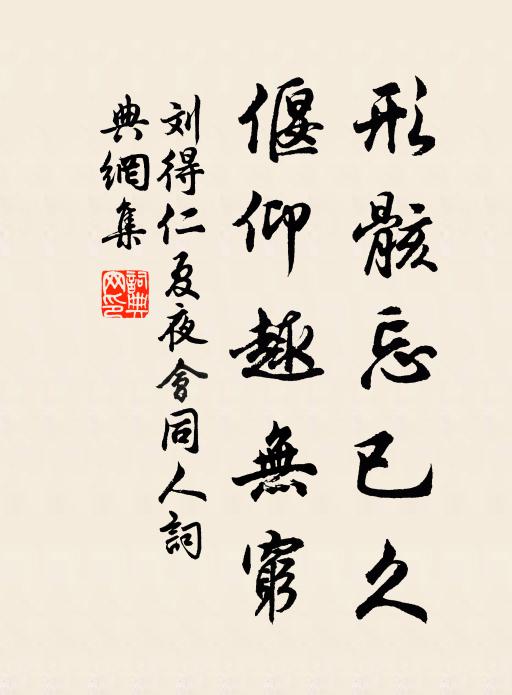 形骸忘已久
偃仰趣無窮
刘得仁夏夜會同人詞
典網集
詞典
网印